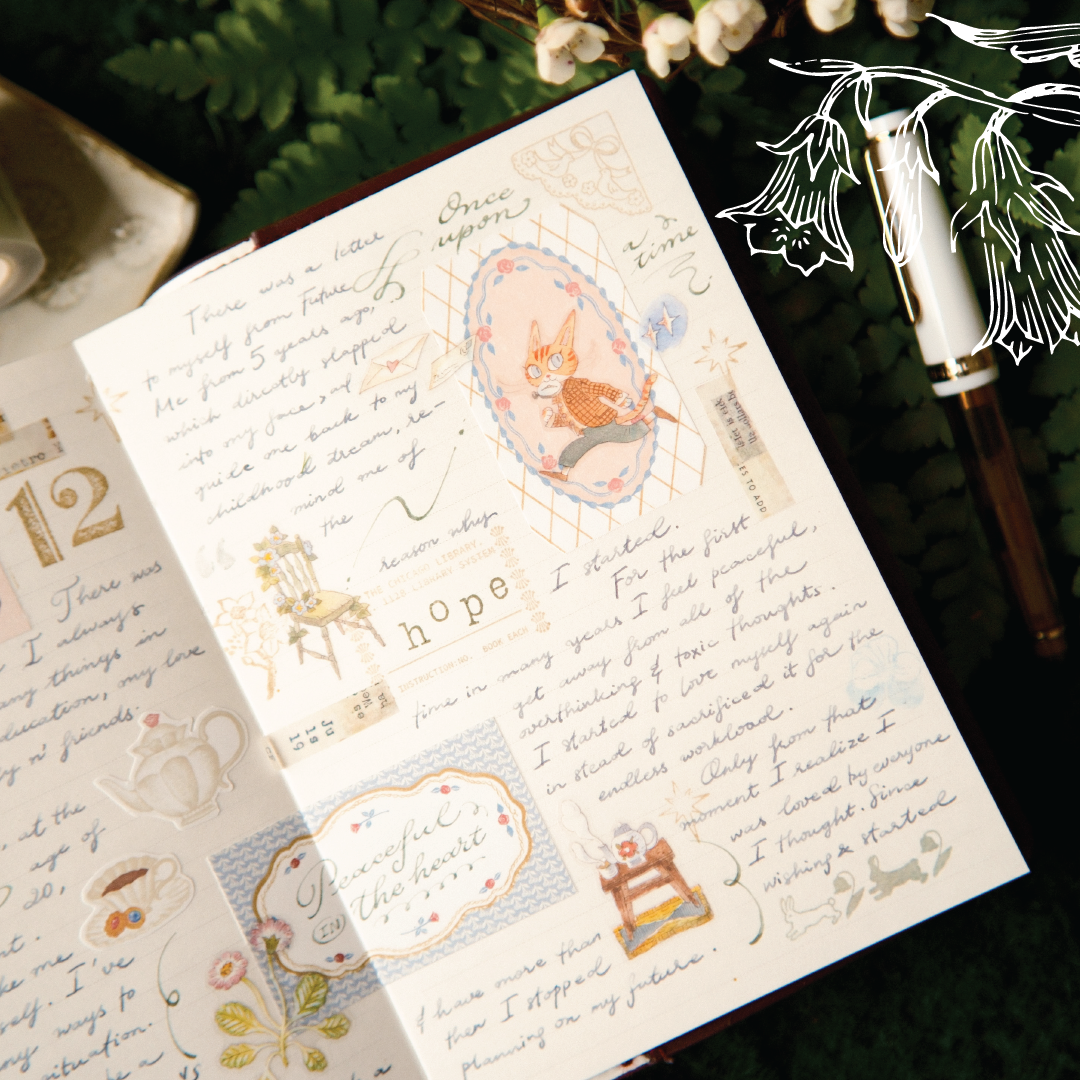 12
There was
I always
any things in
education, my love
n' friends.
at the
age of
20,
I've
ways to
situation.
Once
upon
a
time
There was a letter
to myself from Future
Me from 5 years ago,
which directly slapped
into my face and
guide me back to my
childhood dream, re-
mind me of
the
reason why
THE CHICAGO LIBRARY.
LIBRARY SYSTEM
hope
INSTRUCTION:NO. BOOK EACH
I started.
For the first
time in many years I feel peaceful,
get away from all of the
overthinking & toxic thoughts.
I started to love myself again
in stead of sacrificed it for the
endless workload.
Only from that
moment I realize I
was loved by everyone
I thought. Since
wishing & started
ES TO ADD
Peaceful
IN
the heart
& have more than
then I stopped
planning on my future.